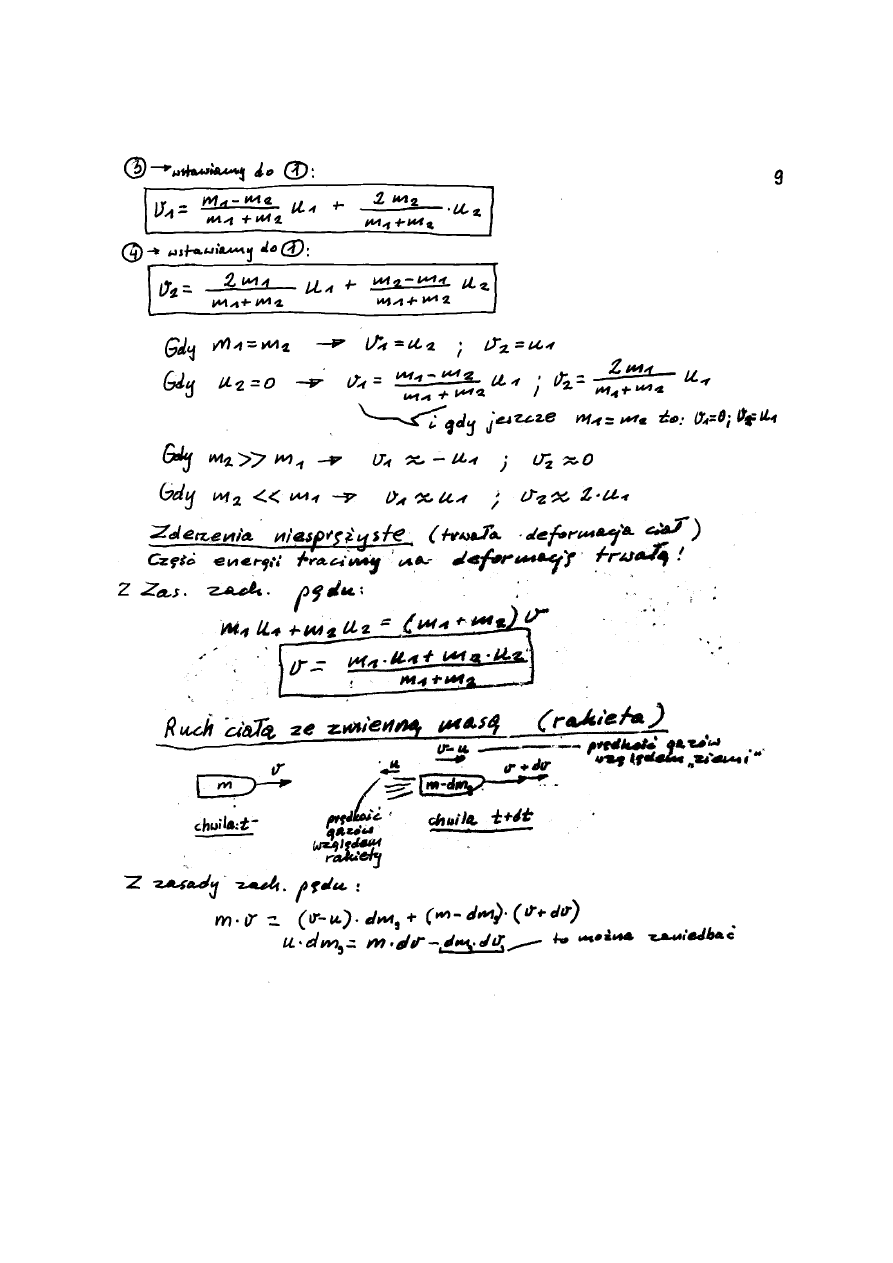 ③ → wstawiamy do ①:
9
v₁ = (m₁ - m₂)/(m₁ + m₂) u₁ + 2m₂/(m₁ + m₂) · u₂
④ → wstawiamy do ①:
v₂ = 2m₁/(m₁ + m₂) u₁ + (m₂ - m₁)/(m₁ + m₂) u₂
Gdy m₁ = m₂ → v₁ = u₂ ; v₂ = u₁
Gdy u₂ = 0 → v₁ = (m₁ - m₂)/(m₁ + m₂) u₁ ; v₂ = 2m₁/(m₁ + m₂) u₁
i gdy jeszcze m₁ = m₂ to: v₁=0; v₂=u₁
Gdy m₂ >> m₁ → v₁ ≈ - u₁ ; v₂ ≈ 0
Gdy m₂ << m₁ → v₁ ≈ u₁ ; v₂ ≈ 2·u₁
Zderzenia niesprężyste (trwała deformacja ciał)
Część energii tracimy na deformację trwałą!
Z Zas. zach. pędu:
m₁u₁ + m₂u₂ = (m₁ + m₂) v
v = (m₁·u₁ + m₂·u₂)/(m₁ + m₂)
Ruch ciała ze zmienną masą (rakieta)
v-u
prędkość gazów
względem „ziemi"
m
v
u
m-dm₉
v + dv
chwila: t
prędkość
gazów
względem
rakiety
chwila t+dt
Z zasady zach. pędu:
m·v = (v-u)·dm₉ + (m-dm₉)·(v+dv)
u·dm₉ = m·dv - dm₉·dv, to można zaniedbać